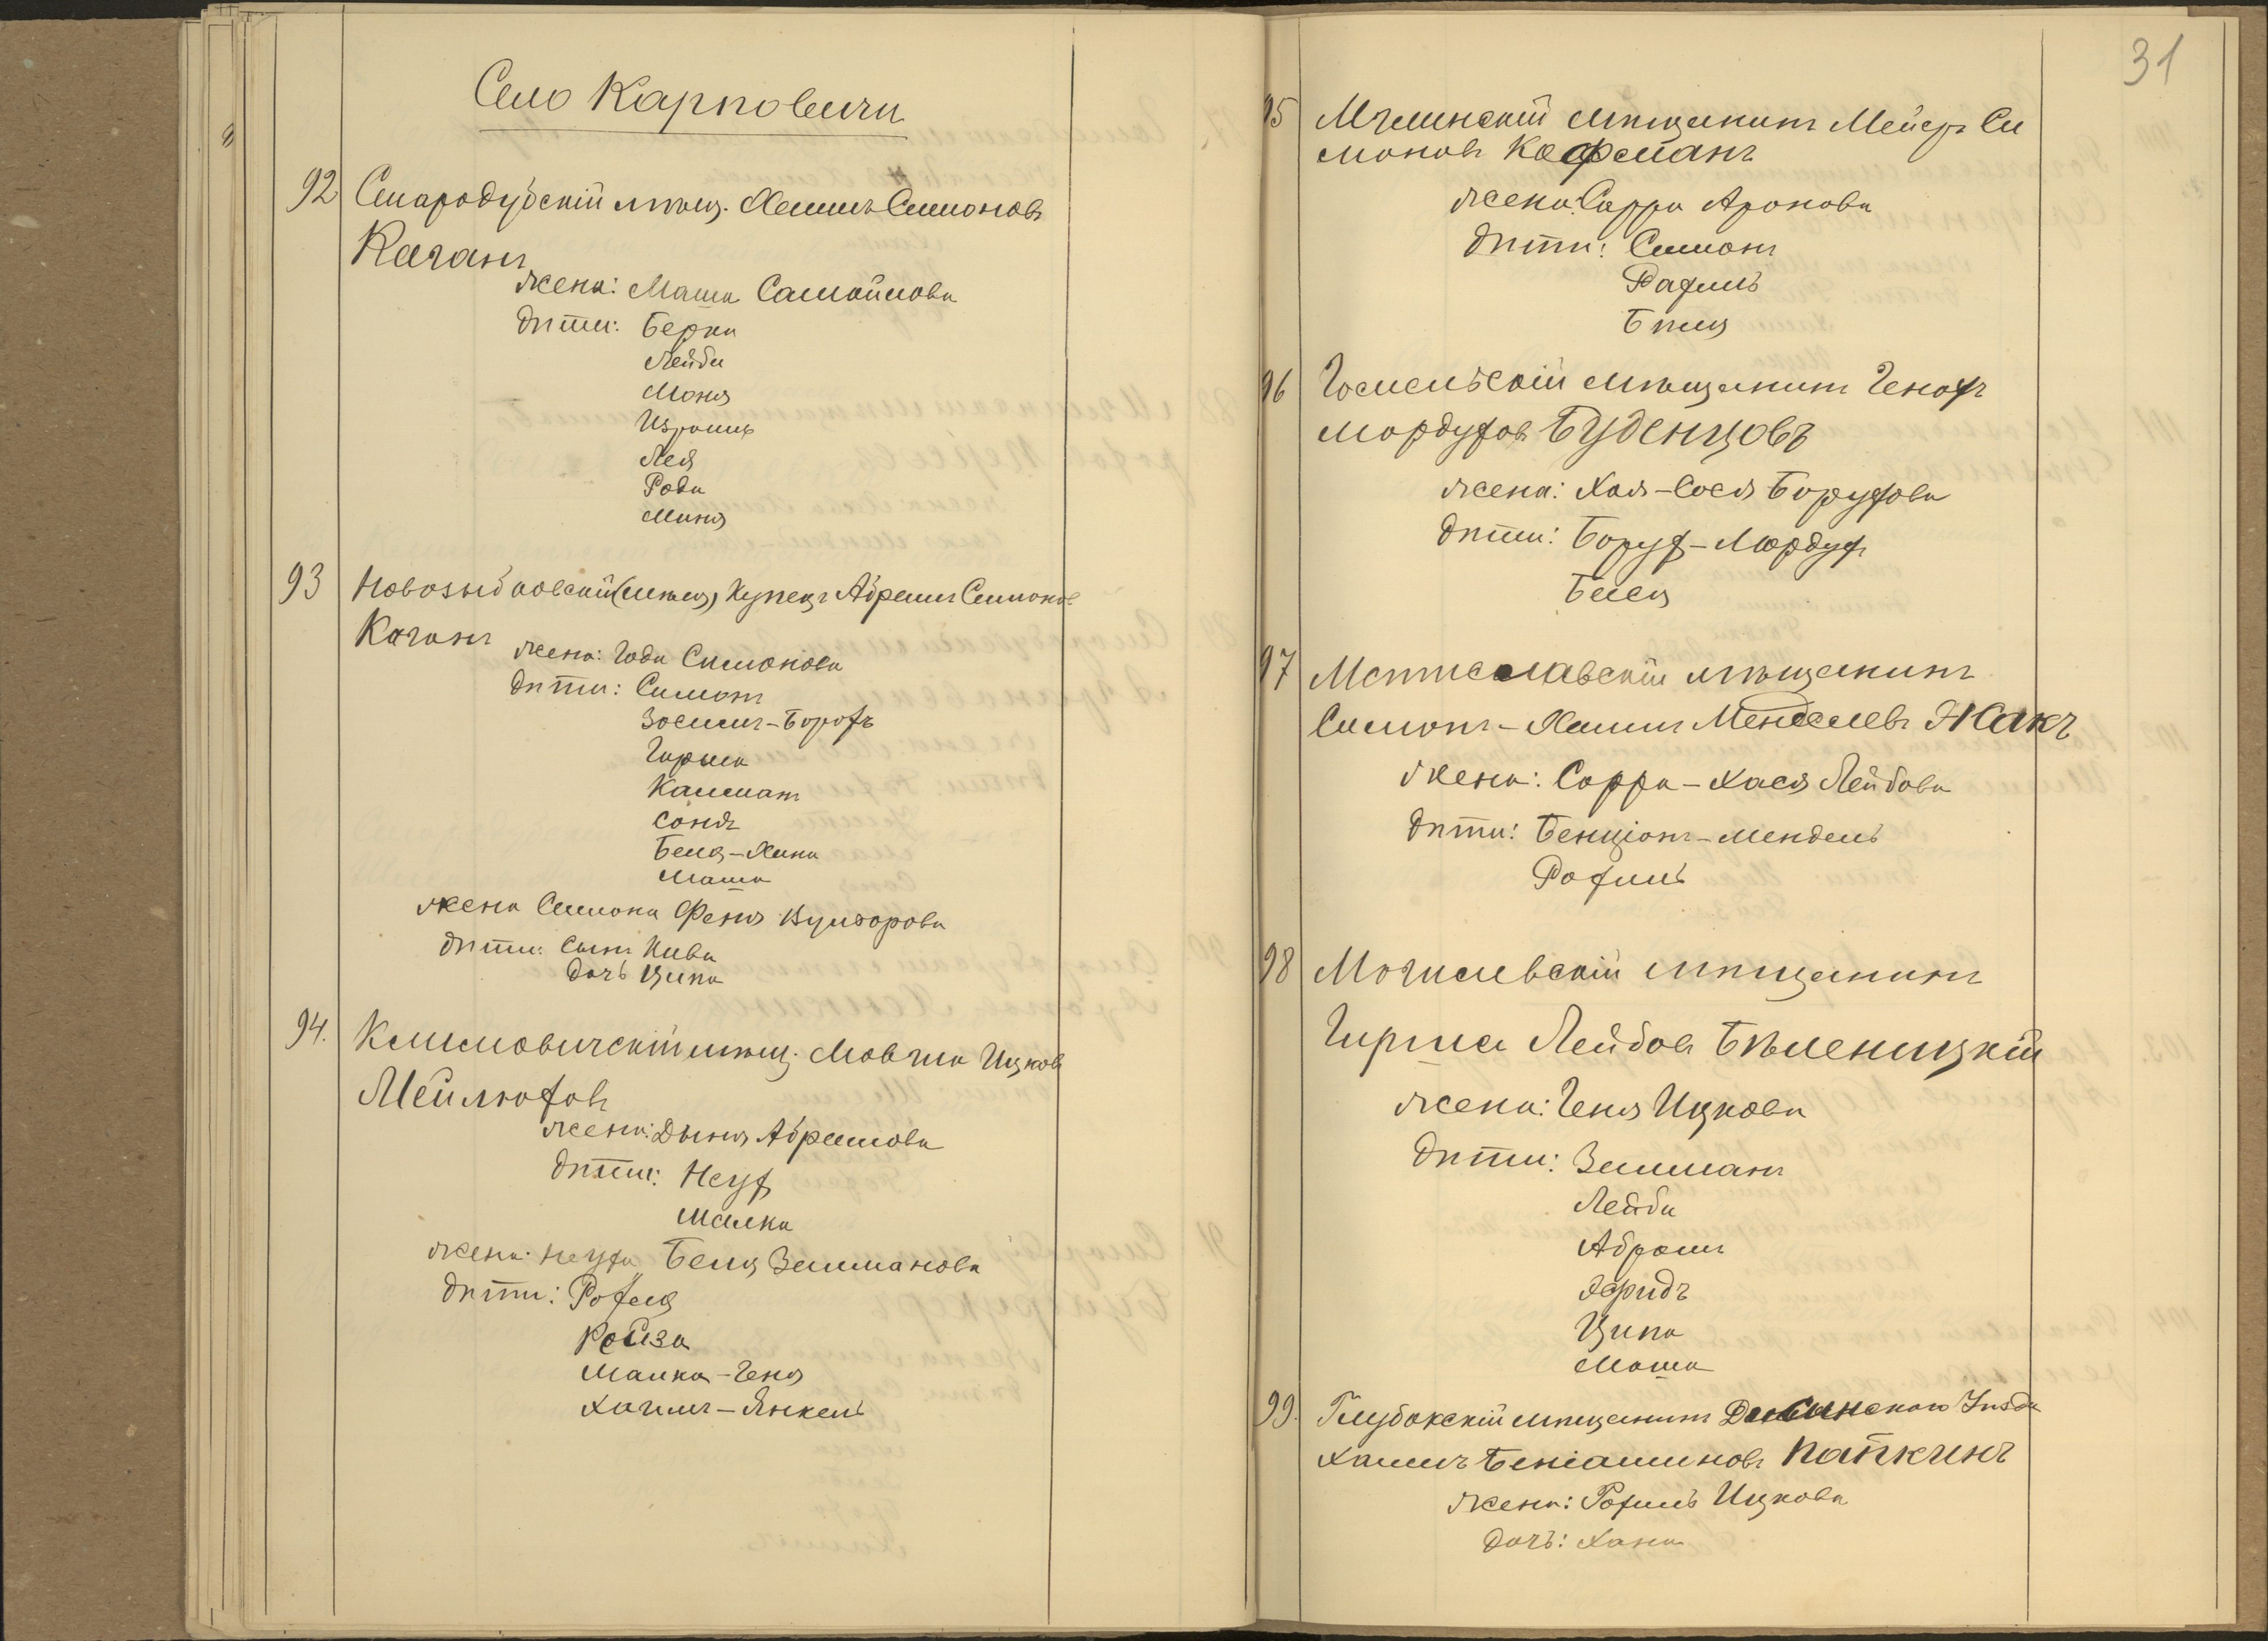 Село Карповичи
92 Стародубскiй мѣщ. Хаимъ Симоновъ
Каганъ
жена: Маша Самойлова
дѣти: Берка
Лейба
Моня
Израиль
Лея
Рода
Миня
93 Новозыбковскiй (мѣщ) Купецъ Абрамъ Симонов
Каганъ
жена: Года Симонова
дѣти: Симонъ
Зосимъ-Борохъ
Гирша
Калманъ
Соня
Беля-Хина
Маша
жена Симона Феня
дѣти: сынъ Кива
дочь Ципа
94. Климовичскiй мѣщ. Мовша Ицков
Мейлюховъ
жена: Дыня Абрамова
дѣти: Неух
Малка
жена Неуха Беля Зелманова
дѣти: Рохля
Ройза
Малка-Геня
Хаимъ-Янкель
31
95 Мглинскiй мѣщанинъ Мейеръ Си
моновъ Кафманъ
жена: Сарра Аронова
дѣти: Симонъ
Рахиль
Бѣля
96 Гомельскiй мѣщанинъ Генохъ
Мордуховъ Буденцовъ
жена: Хая-Сося Борухова
дѣти: Борух-Мордух
Беля
97 Мстиславскiй мѣщанинъ
Симонъ-Хаимъ Менделевъ Жакъ
жена: Сарра-Хася Лейбова
дѣти: Бенцiонъ-Мендель
Рахиль
98 Могилевскiй мѣщанинъ
Гирша Лейбовъ Бѣленицкiй
жена: Геня Ицкова
дѣти: Зелманъ
Лейба
Абрамъ
Ципа
Маша
99. Глубокскiй мѣщанинъ Дисненскаго Уѣзда
Хаимъ Бенiаминовъ Папкинъ
жена: Рахиль Ицкова
дочь: Хана